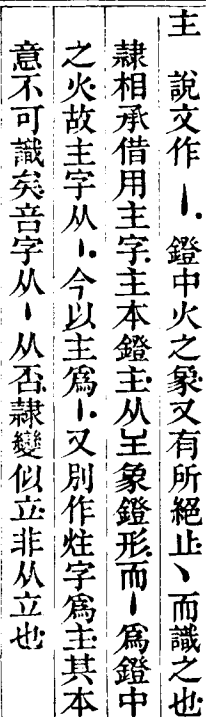 主 說文作丶鐙中火之象又有所絕止丶而識之也
隸相承借用主字主本鐙主从𡈼象鐙形而丶爲鐙中
之火故主字从丶今以主爲丶又別作炷字爲主其本
意不可識矣咅字从丶从否隸變似立非从立也